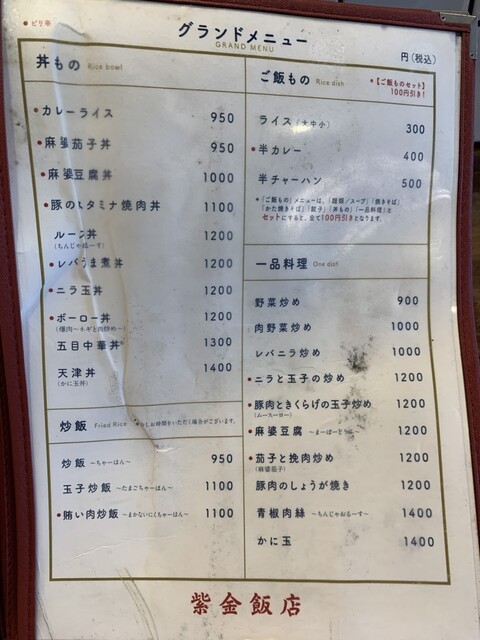 ● ピリ辛
グランドメニュー
GRAND MENU
円(税込)
丼もの Rice bowl
●カレーライス 950
●麻婆茄子丼 950
●麻婆豆腐丼 1000
●豚のスタミナ焼肉丼 1100
ルース丼 1200
(ちんじゃおるーす)
●レバうま煮丼 1200
●ニラ玉丼 1200
●ボーロー丼 1200
(爆肉〜ネギと肉炒め〜)
五目中華丼 1300
天津丼 1400
(かに玉丼)
炒飯 Fried Rice お時間をいただく場合がございます。
炒飯 〜ちゃーはん〜 950
玉子炒飯 〜たまごちゃーはん〜 1100
●賄い肉炒飯 〜まかないにくちゃーはん〜 1100
ご飯もの Rice dish
●【ご飯ものセット】
100円引き!
ライス(大中小) 300
●半カレー 400
半チャーハン 500
●「ご飯もの」メニューは、「麺類/スープ」「焼きそば」
「かた焼きそば」「餃子」「丼もの」「一品料理」と
セットにすると、全て100円引きとなります。
一品料理 One dish
野菜炒め 900
肉野菜炒め 1000
レバニラ炒め 1000
●ニラと玉子の炒め 1200
●豚肉ときくらげの玉子炒め 1200
(ムースーロー)
●麻婆豆腐 〜まーぼーどうふ〜 1200
●茄子と挽肉炒め 1200
(麻婆茄子)
豚肉のしょうが焼き 1200
青椒肉絲 〜ちんじゃおるーす〜 1400
かに玉 1400
紫金飯店